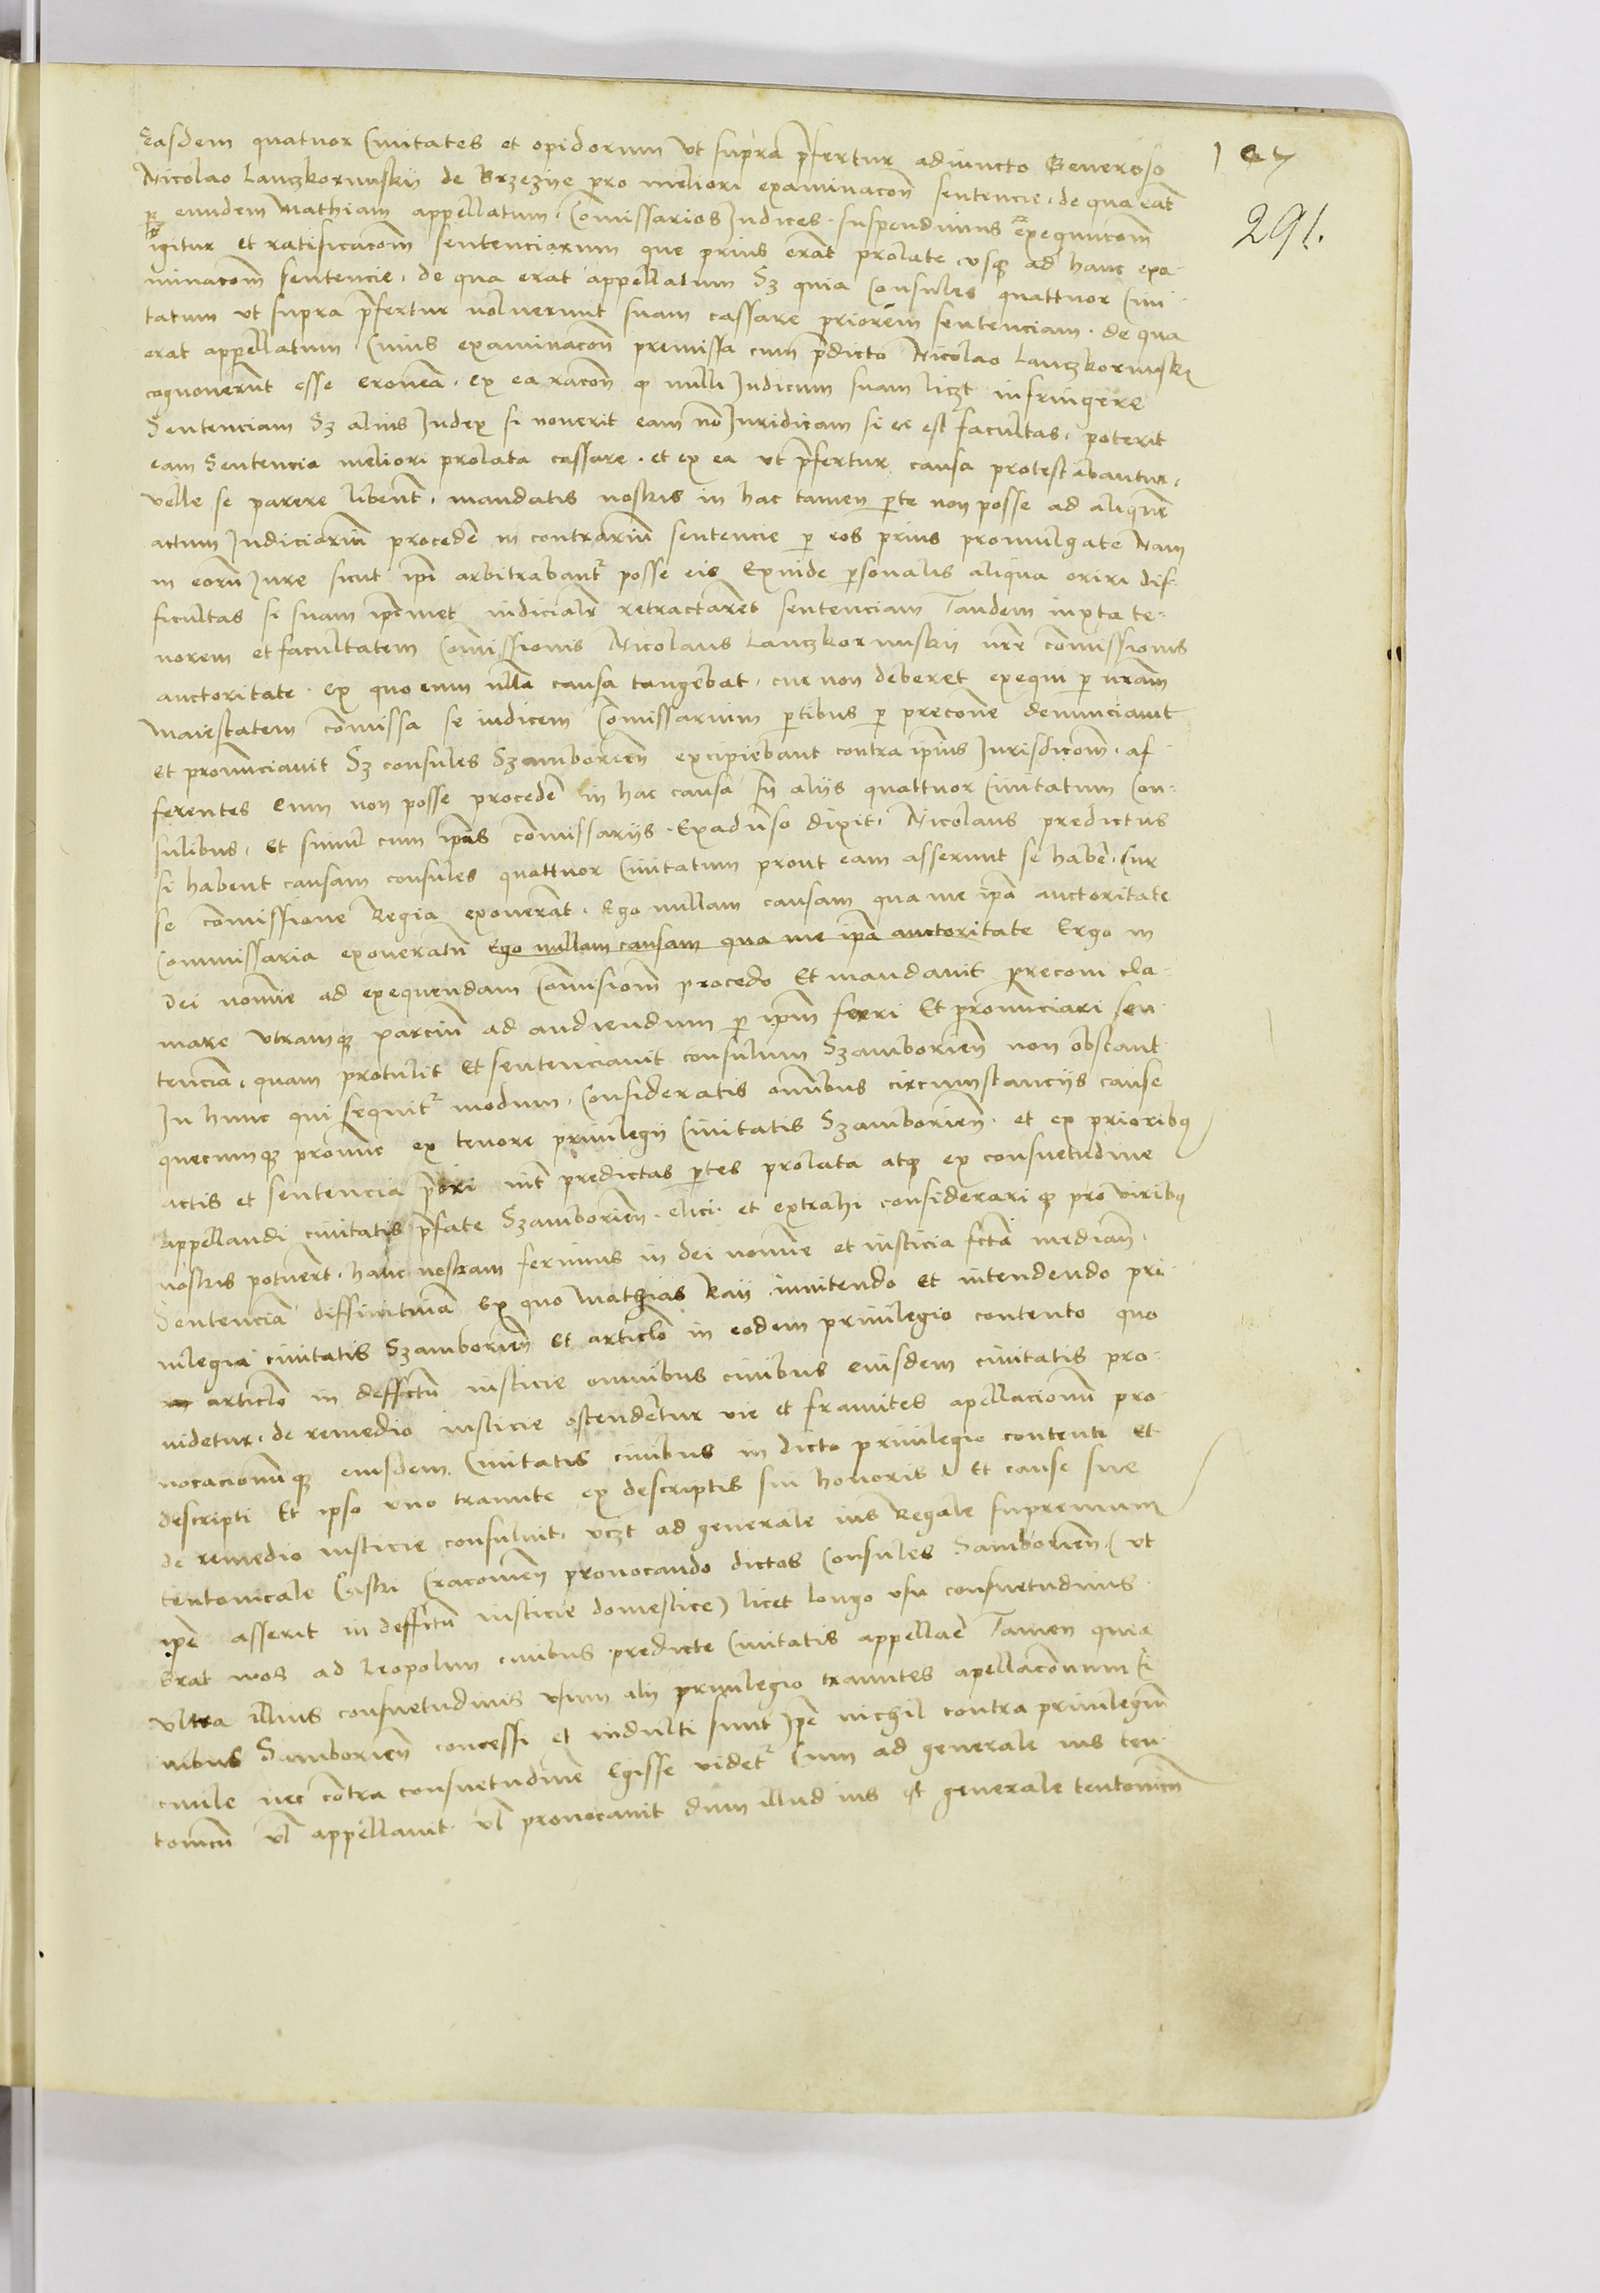 Easdem quatuor Civitates et opidorum ut supra p̄fertur adiuncto Generoso
107
Nicolao Lanczkorunskij de Brzezije pro meliori examinacoñ sentencie, de qua erat
291.
p eundem Mathiam appellatum, Com̄issarios Judices. suspendimus exequucom̄
igitur et ratificacom̄ sentenciarum que prius erāt prolate, usqȝ ad hanc exa-
minacom̄ sentencie, de qua erat appellatum Sȝ quia Consules quattuor Civi-
tatum ut supra p̄fertur noluerunt suam cassare priorem sentenciam. de qua
erat appellatum. Cuius examinacoñ premissa cum p̄dicto Nicolao Lanczkorunskij
cognoverūt esse eroneā. ex ea racoñ qȝ nulli Judicum suam liczt infringere
Sentenciam Sȝ alius Judex si noverit eam nō Juridicam si ei est facultas, poterit
eam Sentencia meliori prolata cassare. et ex ea ut p̄fertur causa protestabantur,
velle se parere libent̄, mandatis nostris in hac tamen pte non posse ad aliquē
actum Judiciariū procedē in contrariū sentencie p eos prius promulgate Nam
in eorū Jure sicut ip̄i arbitrabant̄ posse eis Exinde psonalis aliqua oriri dif-
ficultas si suam ip̄imet iudicialr̄ retractarēt sentenciam Tandem iuxta te-
norem et facultatem Com̄issionis Nicolaus Lanczkorunskij nr̄e com̄issionis
auctoritate. ex quo eum nlla causa tangebat, cur non deberet exequi p nr̄am
Maiestatem com̄issa se iudicem Com̄issarium ptibus p precone denunciavit
et pronunciavit Sȝ consules Sȝamborieñ excipiebant contra ip̄ius Jurisdicom̄. af-
ferentes Eum non posse procedē in hac causa sn̄ aliis quattuor Civitatum Con-
sulibus, et simul cum ip̄is com̄issariis. Exadūso dixit, Nicolaus predictus
si habent causam consules quattuor Civitatum prout eam asserunt se habē, Cur
se com̄issione Regia exonerāt, Ego nullam causam qua me ip̄a auctoritate
Commissaria exoneratū Ego nullam causam qua me ip̄a auctoritate Ergo in
dei nomīe ad exequendam Com̄isiom̄ procedo Et mandavit preconi cla-
mare utramqȝ parciū ad audiendum p ip̄m ferri Et pronunciari sen-
tenciā, quam protulit et sentenciavit consulum Sȝamborieñ non obstant̄
In hunc qui sequit̄ modum, Consideratis om̄ibus circumstanciis cause
quecumqȝ pronunc ex tenore privilegij Civitatis Sȝamborieñ. et ex prioribȝ
actis et sentencia p̄ori int̄ predictas ptes prolata atqȝ ex consuetudine
appellandi civitatis p̄fate Sȝamborieñ. elici. et extrahi considerariqȝ pro viribȝ
nostris potuerūt. hanc nostram ferimus in dei nomīe et iusticia sctā mediañ,
Sentenciā diffinitivā Ex quo Mathias Raij innitendo et intendendo pri-
vilegia civitatis Sȝamborieñ et articlō in eodem privilegio contento quo
articlō in deffectū iusticie omnibus civibus eiusdem civitatis pro-
videtur, de remedio iusticie ostendētur vie et framites apellacionū pro-
vocacionūqȝ eiusdem Civitatis civibus in dicto privilegio contenti et
descripti Et ipso uno tramite ex descriptis sui honoris et cause sue
de remedio iusticie consuluit, vczt ad generale ius Regale supremum
teutonicale Castri Cracovieñ provocando dictos Consules Samborieñ (ut
ip̄e asserit in deffectū iusticie domestice) licet longo usu consuetudinis
Erat mos ad Leopolim civibus predicte Civitatis appellarē Tamen quia
ultra illius consuetudinis usum alij privilegio tramites apellaconum Ci-
vibus Samborieñ concessi et indulti sunt Ip̄e nichil contra privilegiū
civile nec contra consuetudinē Egisse videt̄ Cum ad generale ius teu-
tonicū ul appellavit ul provocavit dum illud ius est generale teutonicū